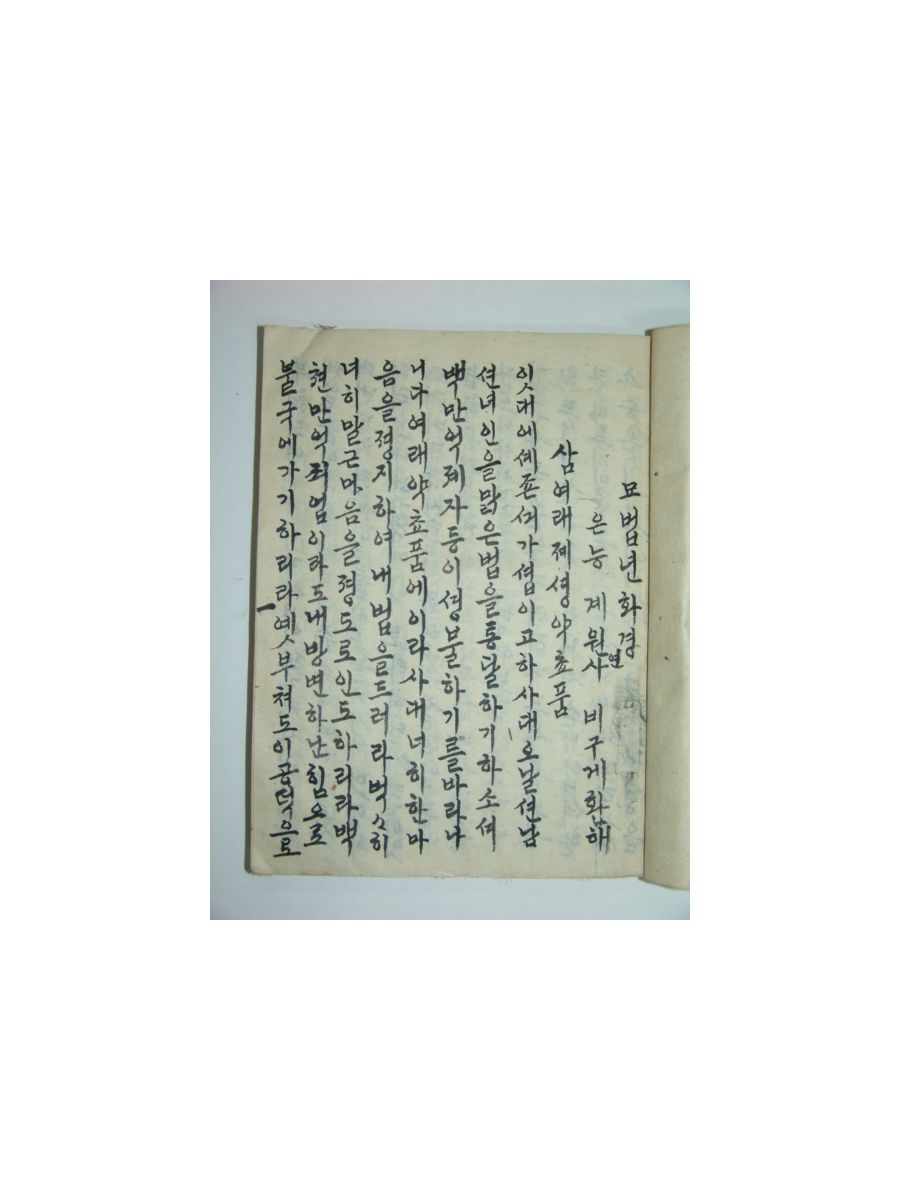 묘법년화경
온능 계원사 비구게환해
연
삼여래졔셩약쵸품
잇대에셰죤셔가셥이고하사대오날션남
션녀인을맑은법을통달하기하소셔
백만억졔자등이셩불하기를바라나
니다여래약쵸품에이라사대너히한마
음을졍지하여내법을드러라벅스히
너히말근마음을졍도로인도하리라백
쳔만억죄업이라도내방변하난힘으로
불국에가기하리라옛부쳐도이공덕으로